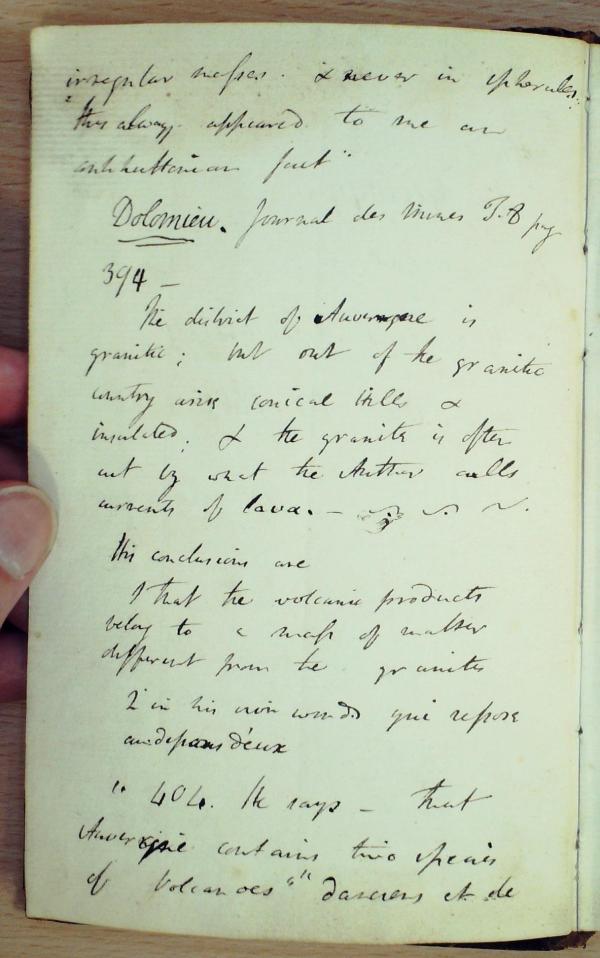 irregular masses. & never in spherules.
"this always appeared to me an
antihuttonian fact"
Dolomieu. Journal des Mines T.8 pag
394 —
The district of Auvergne is
granitic; but out of the granitic
country arise conical hills &
insulated, & the granite is often
cut by what the Author calls
currents of lava. —
His conclusions are
1 that the volcanic products
belong to a mass of matter
different from the granites
2 in his own words qui repose
au dessous d'eux
" 404. He says — that
Auvergne contains two species
of Volcanoes " d'anciens et de